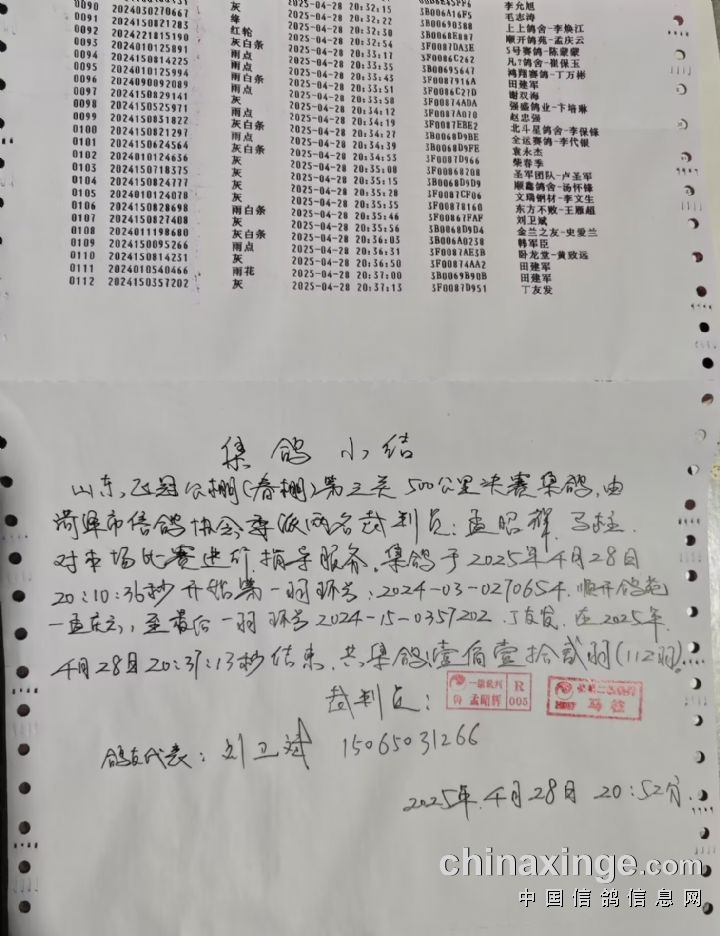 0090 2024030270667 绛 2025-04-28 20:32:22
0091 2024150821283 红轮 2025-04-28 20:32:30 3F0087DA3E 5号赛鸽-陈蒙蒙
0092 2024221815190 灰白条 2025-04-28 20:32:54 3F0086C262 凡?鸽舍-崔保玉
0093 2024010125891 雨点 2025-04-28 20:33:33 3B00695647 鸿翔赛鸽-丁万彬
0094 2024150814225 雨点 2025-04-28 20:33:35 3F0087916A 田建军
0095 2024010125994 雨白条 2025-04-28 20:33:43 3F0086C27D 谢双海
0096 2024090092089 雨点 2025-04-28 20:33:51 3F00874ADA 强盛鸽业-卞培琳
0097 2024150829141 灰 2025-04-28 20:33:58 3F0087A070 赵忠强
0098 2024150525971 雨点 2025-04-28 20:34:12 3F0087EBE2 北斗星鸽舍-李保锋
0099 2024150831822 灰白条 2025-04-28 20:34:19 3B0068D9BE 全运赛鸽-李代银
0100 2024150821297 雨点 2025-04-28 20:34:27 3B0068D9FE 袁永杰
0101 2024150624564 灰白条 2025-04-28 20:34:39 3F0087D966 柴春季
0102 2024010124636 灰 2025-04-28 20:34:53 3F00868208 圣军团队-卢圣军
0103 2024150718375 灰 2025-04-28 20:35:08 3B0068D9D9 顺鑫鸽舍-汤怀锋
0104 2024150824777 灰 2025-04-28 20:35:15 3F0087CF06 文瑞钢材-李文生
0105 2024010124078 灰 2025-04-28 20:35:28 3F00878160 东方不败-王雁超
0106 2024150828698 雨白条 2025-04-28 20:35:46 3F00867FAF 刘卫斌
0107 2024150827408 灰 2025-04-28 20:35:56 3B0068D9D4 金兰之友-史爱兰
0108 2024011198680 灰白条 2025-04-28 20:36:03 3B006A0238 韩军臣
0109 2024150095266 雨点 2025-04-28 20:36:31 3F0087AE3B 卧龙堂-黄致远
0110 2024150814231 灰 2025-04-28 20:36:50 3F00874AA2 田建军
0111 2024010540466 雨花 2025-04-28 20:37:00 3B0069B90B 田建军
0112 2024150357202 灰 2025-04-28 20:37:13 3F0087D951 丁友发
集鸽小结
山东飞冠公棚(春棚)第三关500公里决赛集鸽,由
菏泽市信鸽协会委派两名裁判员:孟昭辉.马柱.
对本场比赛进行指导服务,集鸽于2025年4月28日
20:10:36秒开始第一羽环号:2024-03-0270654.顺开鸽苑
-孟庆云,至最后一羽环号2024-15-0357202.丁友发.在2025年
4月28日20:37:13秒结束,共集鸽:壹佰壹拾贰羽(112羽).
裁判员: 一级裁判 鲁 孟昭辉 R 005 马柱
鸽友代表:刘卫斌 15065031266
2025年4月28日 20:52分.
chinaxinge.com
中国信鸽信息网